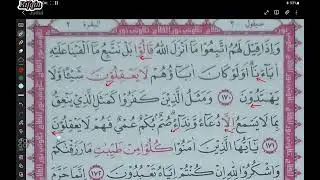 سيقول ٢
البقرة ٢
وَإِذَا قِيلَ لَهُمُ اتَّبِعُوا مَا أَنْزَلَ اللَّهُ قَالُوا بَلْ نَتَّبِعُ مَا أَلْفَيْنَا عَلَيْهِ
آبَاءَنَا أَوَلَوْ كَانَ آبَاؤُهُمْ لَا يَعْقِلُونَ شَيْئًا وَلَا
يَهْتَدُونَ ١٧٠ وَمَثَلُ الَّذِينَ كَفَرُوا كَمَثَلِ الَّذِي يَنْعِقُ
بِمَا لَا يَسْمَعُ إِلَّا دُعَاءً وَنِدَاءً صُمٌّ بُكْمٌ عُمْيٌ فَهُمْ لَا يَعْقِلُونَ
١٧١ يَا أَيُّهَا الَّذِينَ آمَنُوا كُلُوا مِنْ طَيِّبَاتِ مَا رَزَقْنَاكُمْ
وَاشْكُرُوا لِلَّهِ إِنْ كُنْتُمْ إِيَّاهُ تَعْبُدُونَ ١٧٢ إِنَّمَا حَرَّمَ